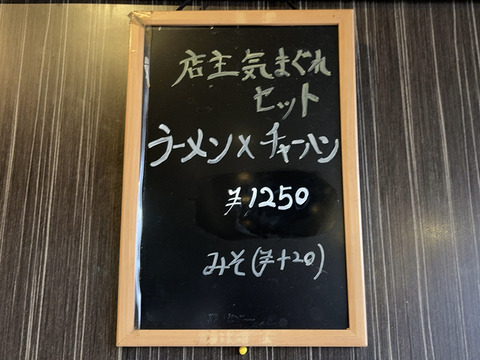 店主気まぐれ
セット
ラーメン×チャーハン
¥1250
みそ(¥+20)